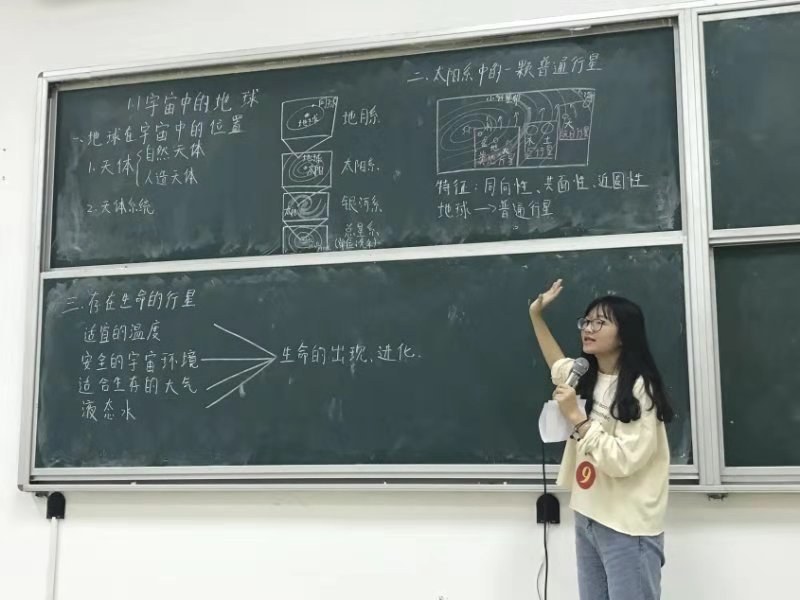 1.1宇宙中的地球
一、地球在宇宙中的位置
1.天体
自然天体
人造天体
2.天体系统
地月系
地球
太阳系
地球
太阳
银河系
太阳
总星系
二、太阳系中的一颗普通行星
小行星带
特征：同向性、共面性、近圆性
地球→普通行星
三、存在生命的行星
适宜的温度
安全的宇宙环境
适合生存的大气
液态水
生命的出现、进化.
9